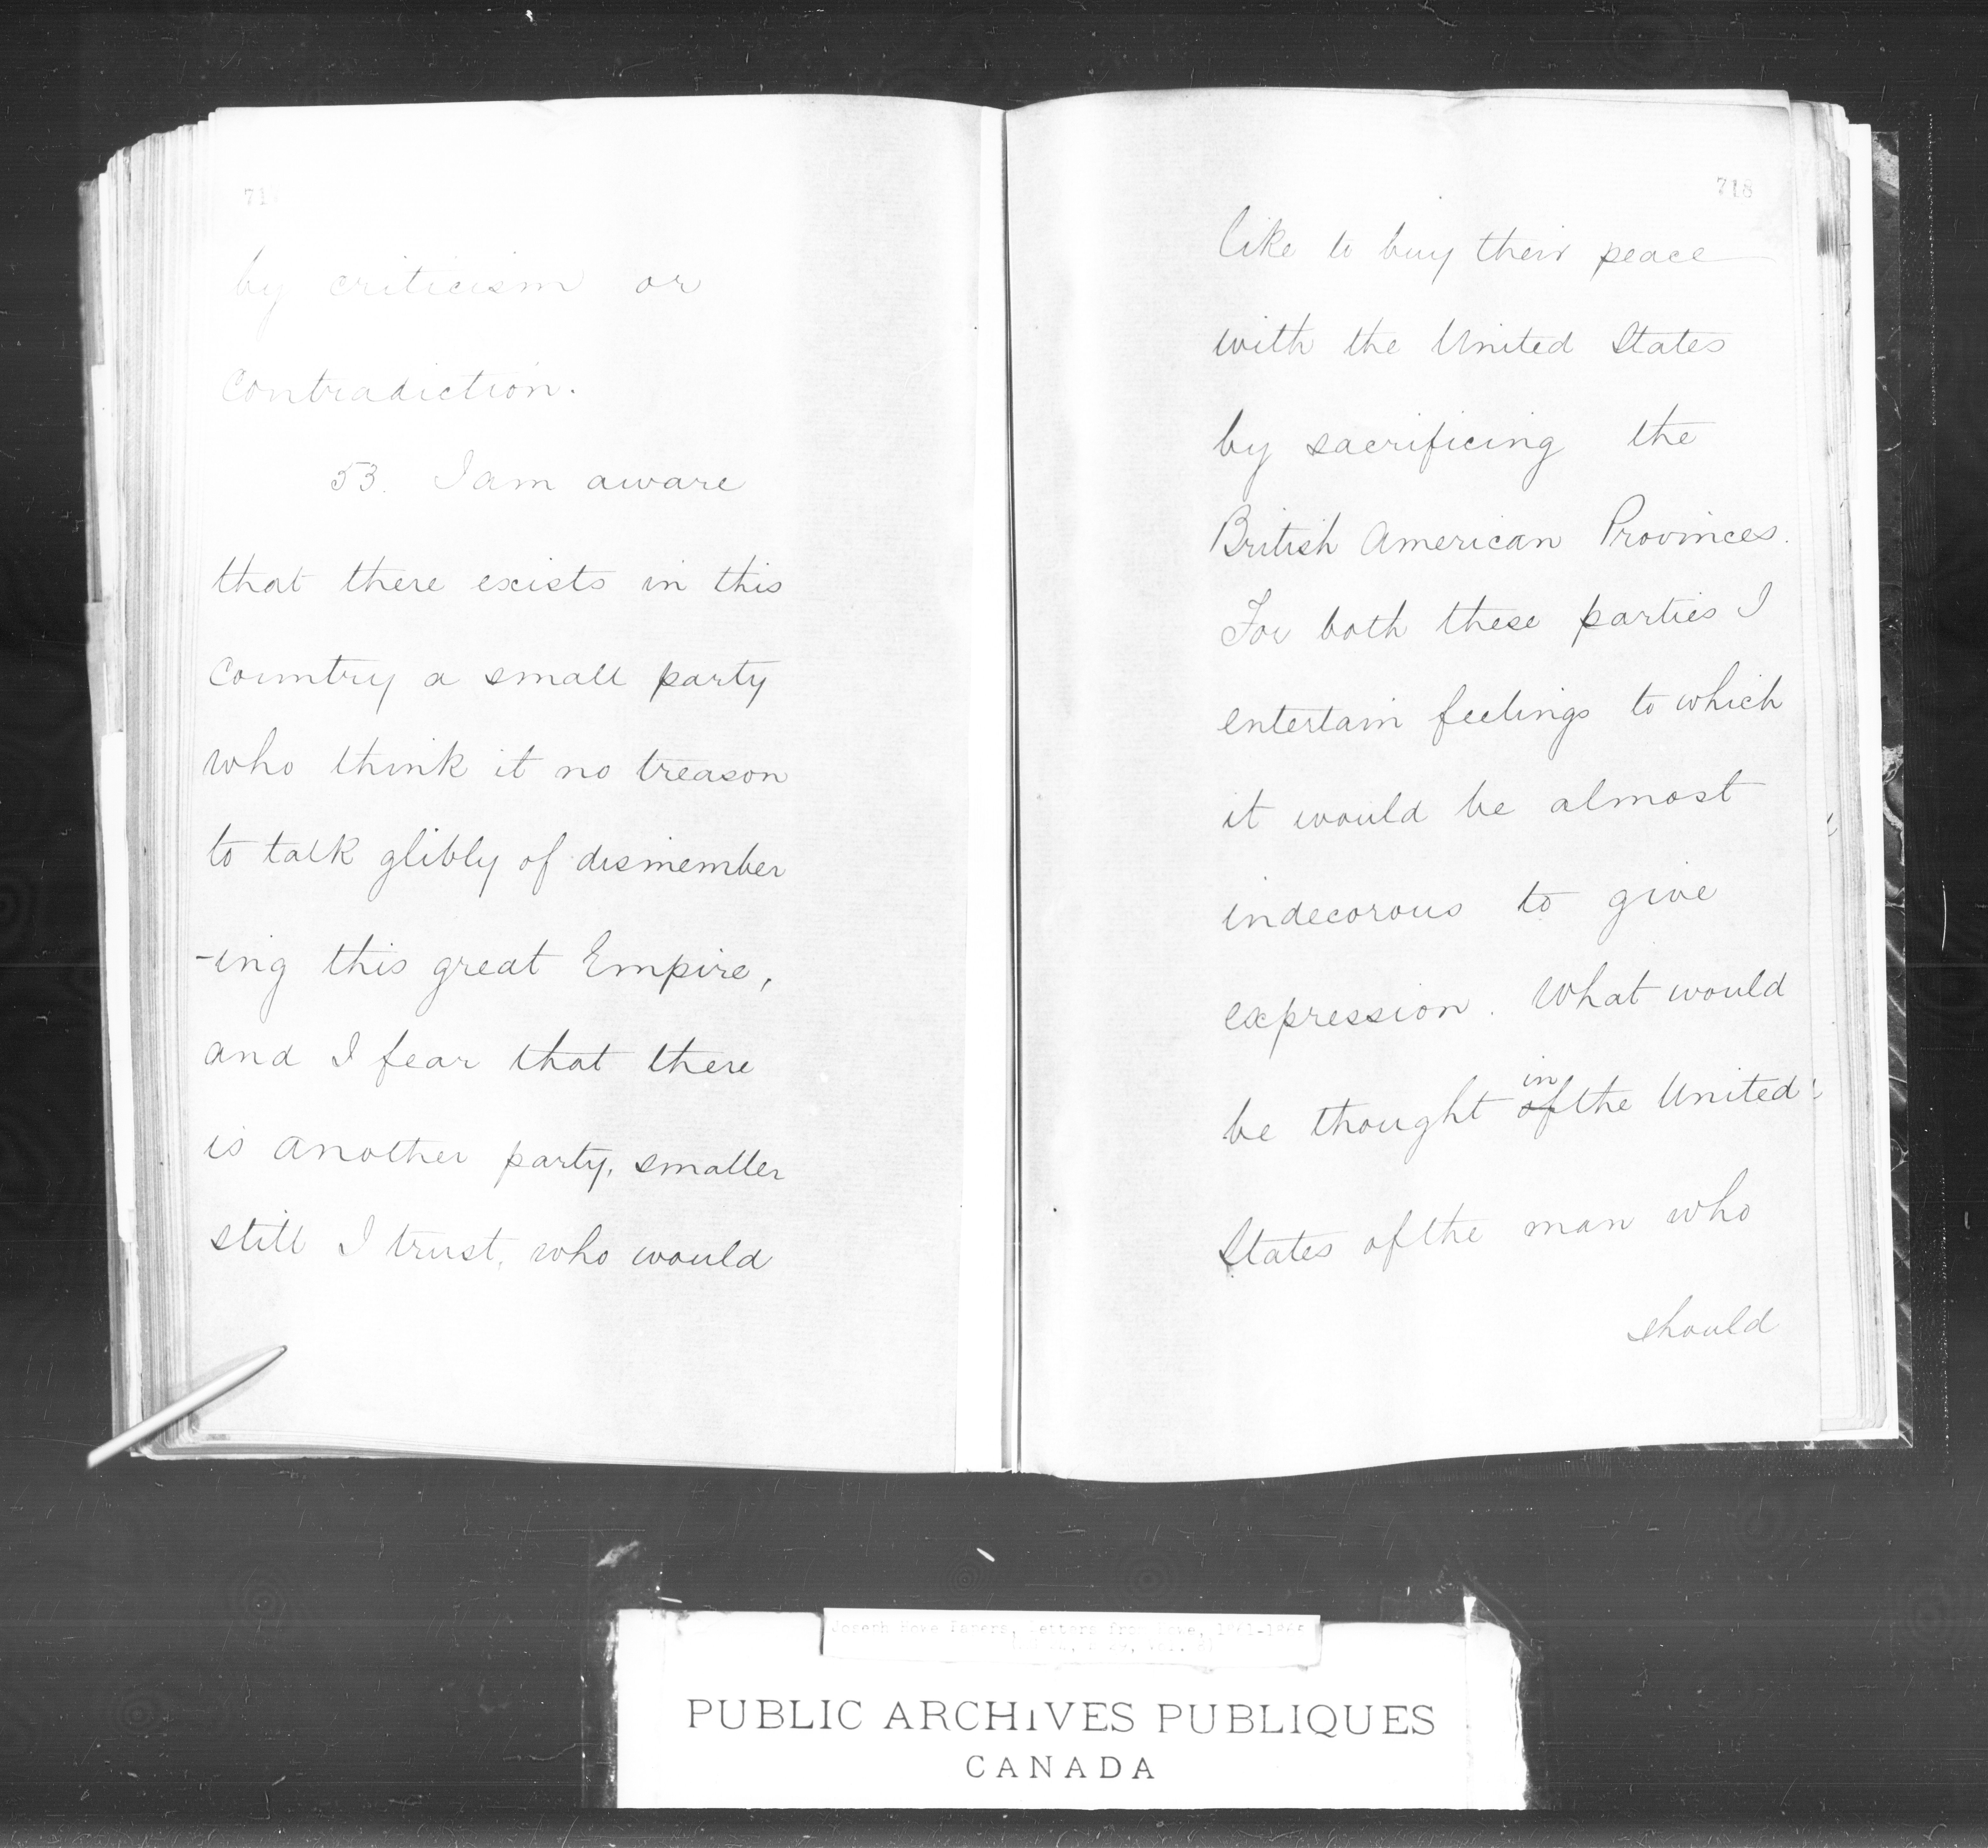 71
by criticism or
contradiction.
53. I am aware
that there exists in this
Country a small party
who think it no treason
to talk glibly of dismember
-ing this great Empire,
and I fear that there
is another party, smaller
still I trust, who would
718
like to buy their peace
with the United States
by sacrificing the
British American Provinces.
For both these parties I
entertain feelings to which
it would be almost
indecorous to give
expression. What would
in
be thought of the United
States of the man who
should
Joseph Howe Papers, Letters from Howe, 1861-
PUBLIC ARCHIVES PUBLIQUES
CANADA